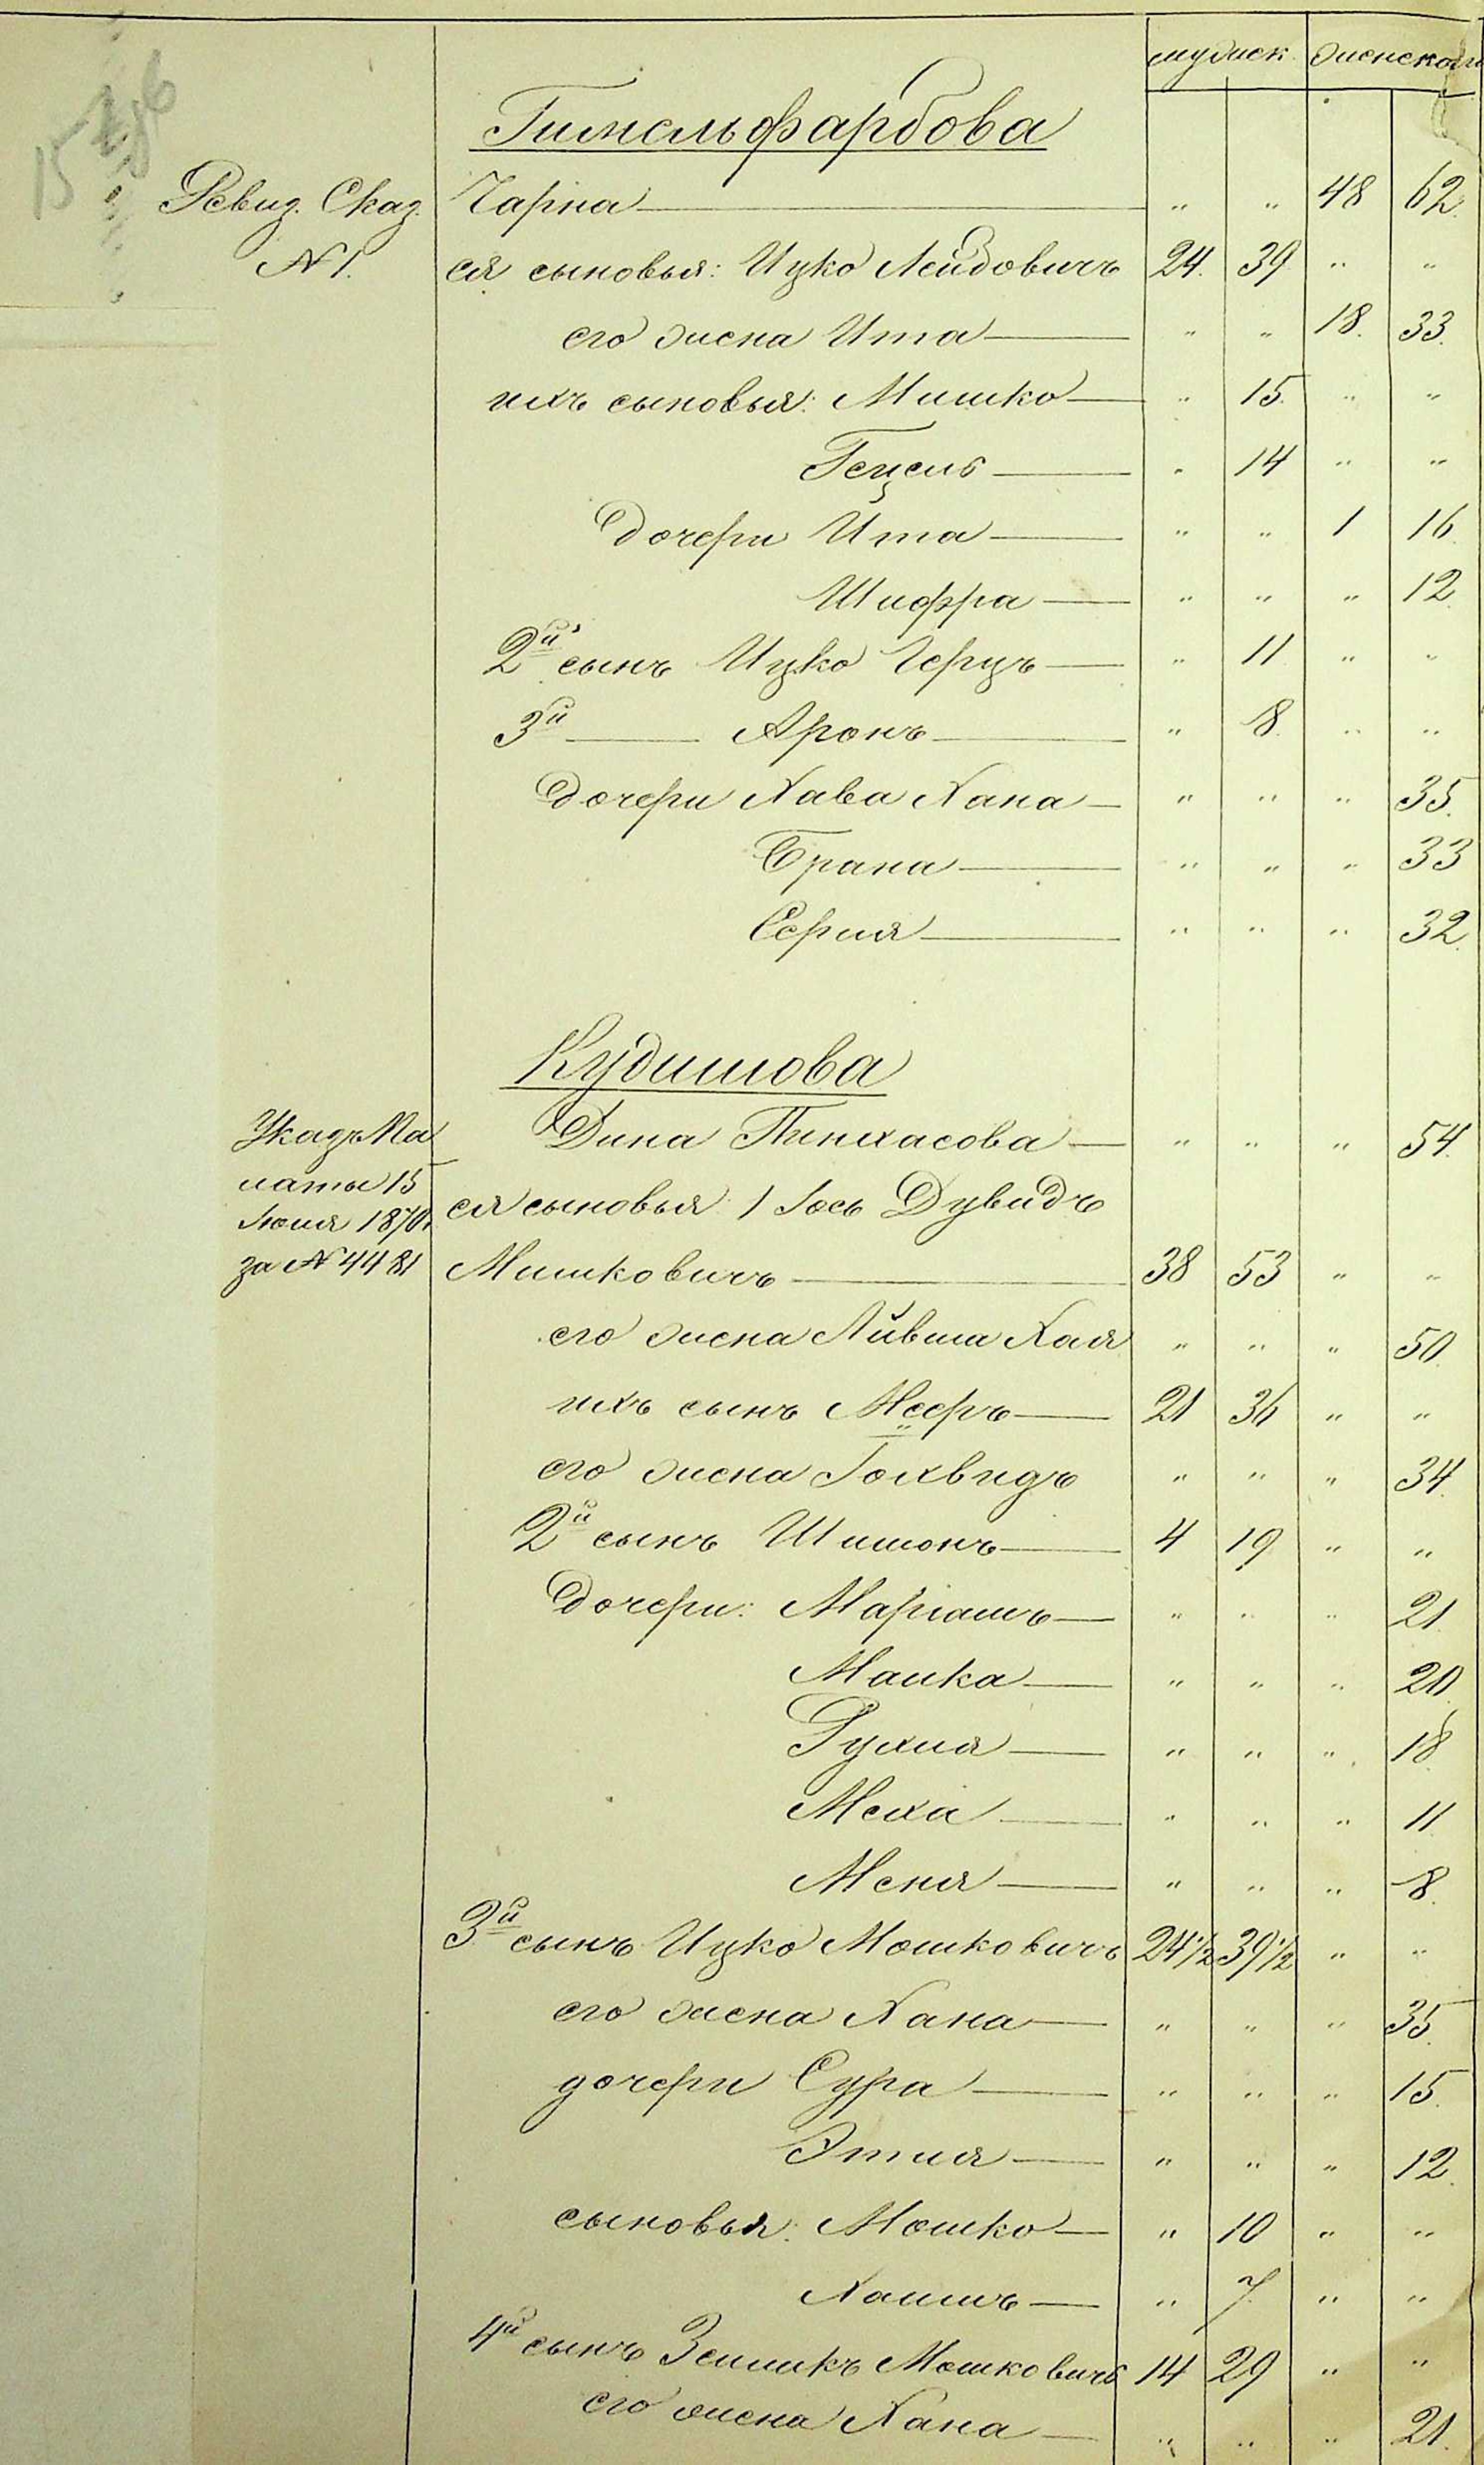 мужеск. женскаго
Гимельфарбова
Ревиз. Сказ. Чарна " " 48 62.
№ 1. ея сыновья: Ицко Лейзовичъ 24. 39 " "
его жена Ита " " 18. 33.
ихъ сыновья: Мишко " 15. " "
Гецель " 14 " "
Дочери Ита " " 1 16
Шифра " " " 12
2й сынъ Ицко Герцъ " 11 " "
3й Аронъ " 8. " "
Дочери Хава Хана " " " 35.
Брана " " " 33
Серля " " " 32.
Кудишова
Указъ Па Дина Пинхасова " " " 54.
латы 15
Іюля 1870г. ея сыновья: 1 Іось Дувидъ
за № 4481 Мишковичъ 38 53 " "
его жена Ливша Хая " " " 50.
ихъ сынъ Мееръ 21 36 " "
его жена " " " 34.
2й сынъ Шимонъ 4 19 " "
Дочери: Маріамъ " " " 21.
Малка " " " 20.
Рухля " " " 18.
Меха " " " 11
Меня " " " 8.
3й сынъ Ицко Мошковичъ 24½ 39½ " "
его жена Хана " " " 35.
дочери Сура " " " 15.
Этля " " " 12.
сыновья: Мошко " 10 " "
Хаимъ " 7. " "
4й сынъ Зеликъ Мошковичъ 14 29 " "
его жена Хана " " " 21.